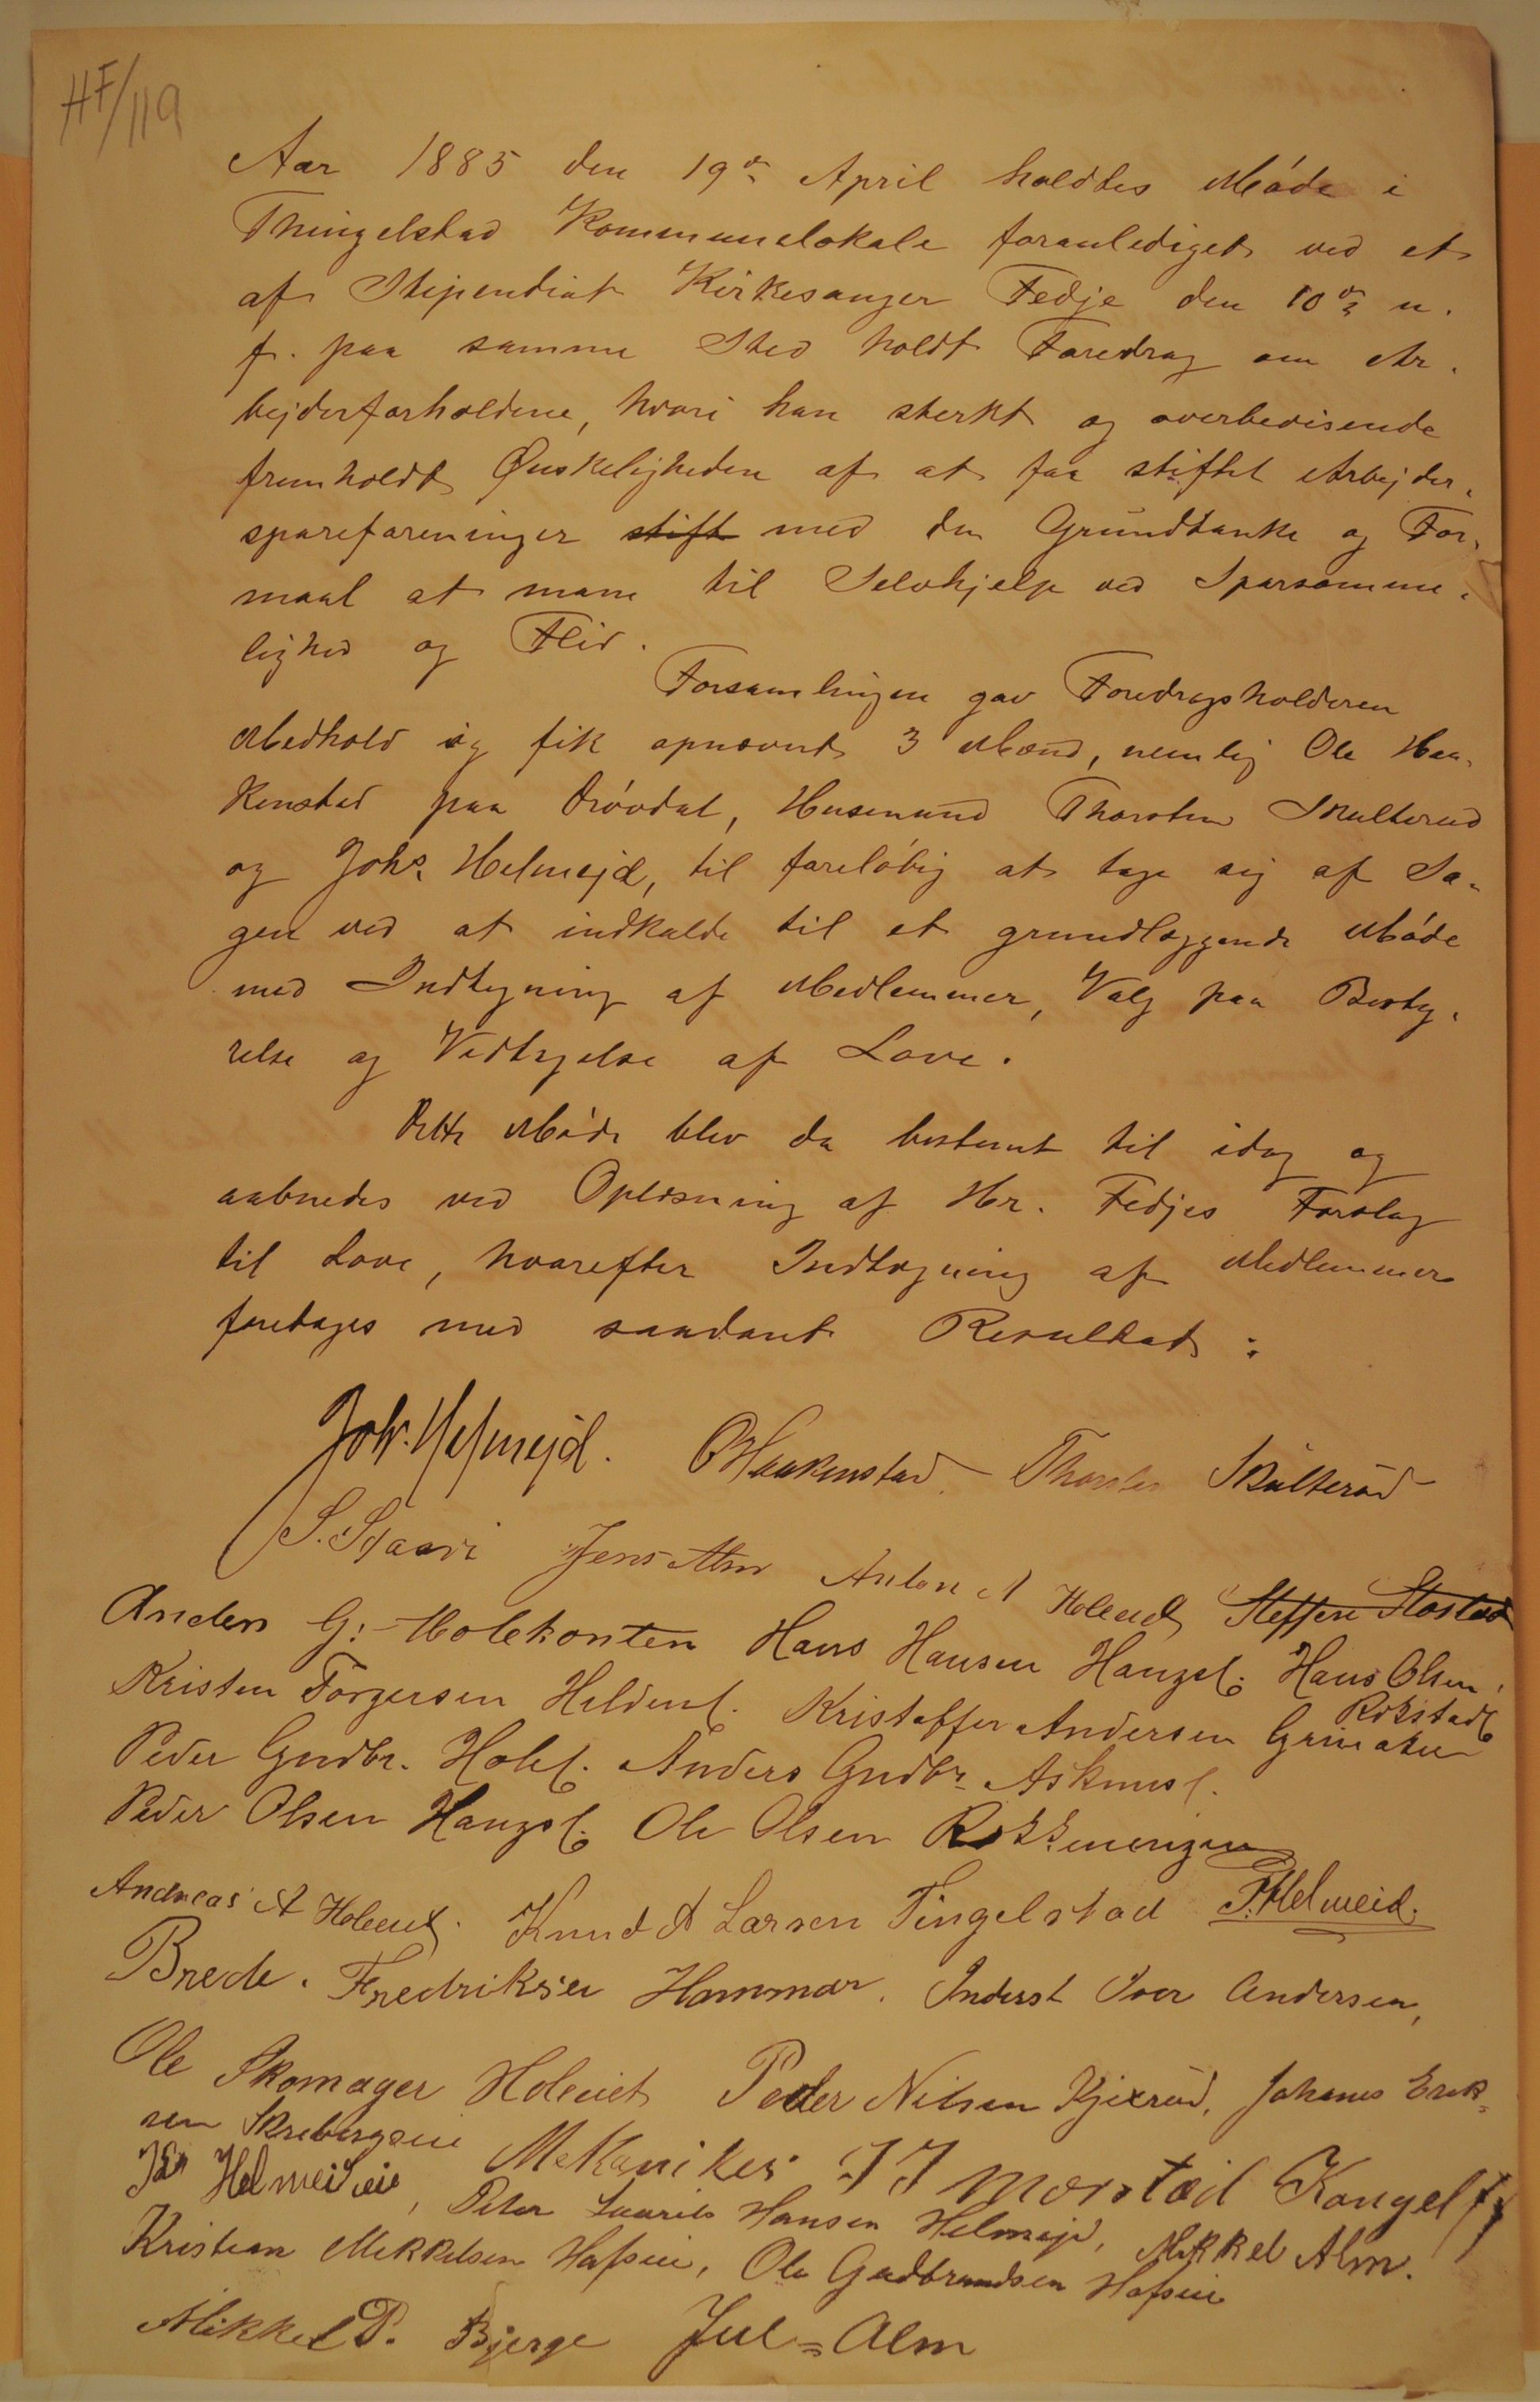 HF/119
Aar 1885 den 19de April holdtes Møde i
Thingelstad Kommunelokale foranlediget ved et
af Stipendiat Kirkesanger Fedje den 10de n.
f. paa samme Sted holdt Foredrag om Ar-
bejderforholdene, hvori han sterkt og overbevisende
fremholdt Ønskeligheden af at faa stiftet Arbejder-
spareforeninger stift med den Grundtanke og For-
maal at mane til Selvhjelp ved Sparsomme-
lighed og Flid.
Forsamlingen gav Foredragsholderen
Medhold og fik opnævnt 3 Mænd, nemlig Ole Haa-
kenstad paa Brøvdal, Husmand Thorsten Skulterud
og Johs Helmejd, til foreløbig at tage sig af Sa-
gen ved at indkalde til et grundlæggende Møde
med Indtegning af Medlemmer, Valg paa Besty-
relse og Vedtagelse af Love.
Dette Møde blev da bestemt til idag og
aabnedes ved Oplæsning af Hr. Fedjes Forslag
til Love, hvorefter Indtegning af Medlemmer
foretages med saadant Resultat:
Joh. Helmejd. O Haakenstad Thorsten Skulterud
S. Jens Alm Anton A Steffen Stastad
Anders G. Molekonten Hans Hansen Hangsl. Hans Olsen
Rokstad
Kristen Torgersen Kristoffer Andersen
Peder Gudbr. Anders Gudbr
Peder Olsen Hangsl. Ole Olsen
Andreas A Knud A Larsen Tingelstad P. Helmeid.
Brede. Fredriksen Hammar. Inderst Iver Andersen,
Ole Skomager Peder Nilsen Kjixrud, Johanes Erik-
sen
Helmeideie Mekaniker J J Morstad
Peter Laurits Hansen Helmejd, Mikkel Alm.
Kristian Mikkelsen Ole Gudbrandsen
Mikkel P. Bjerge Jul=Alm